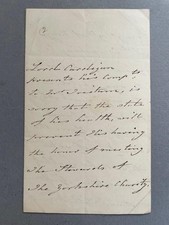 Lord Cardigan
presents his compts
to Mr Tristram, is
sorry that the state
of his health, will
prevent his having
the honor of meeting
The Stewards of
The Yorkshire Charity.